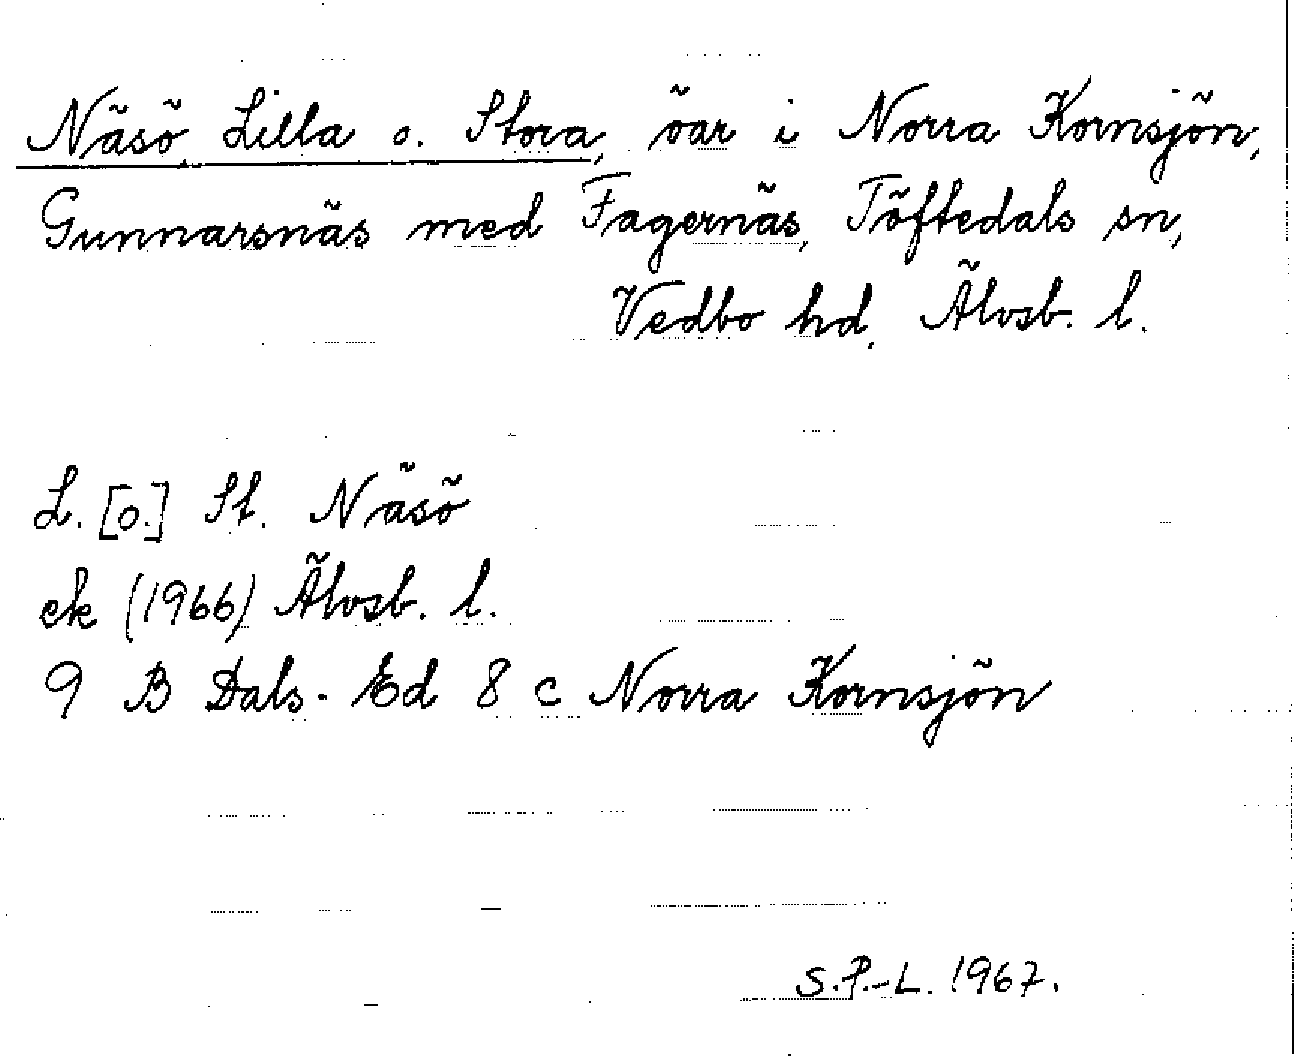 Näsö, Lilla o. Stora, öar i Norra Kornsjön,
Gunnarsnäs med Fagernäs, Töftedals sn,
Vedbo hd, Älvsb. l.
L. [o.] St. Näsö
ek (1966) Älvsb. l.
9 B Dals-Ed 8 c Norra Kornsjön
S.P.-L. 1967.